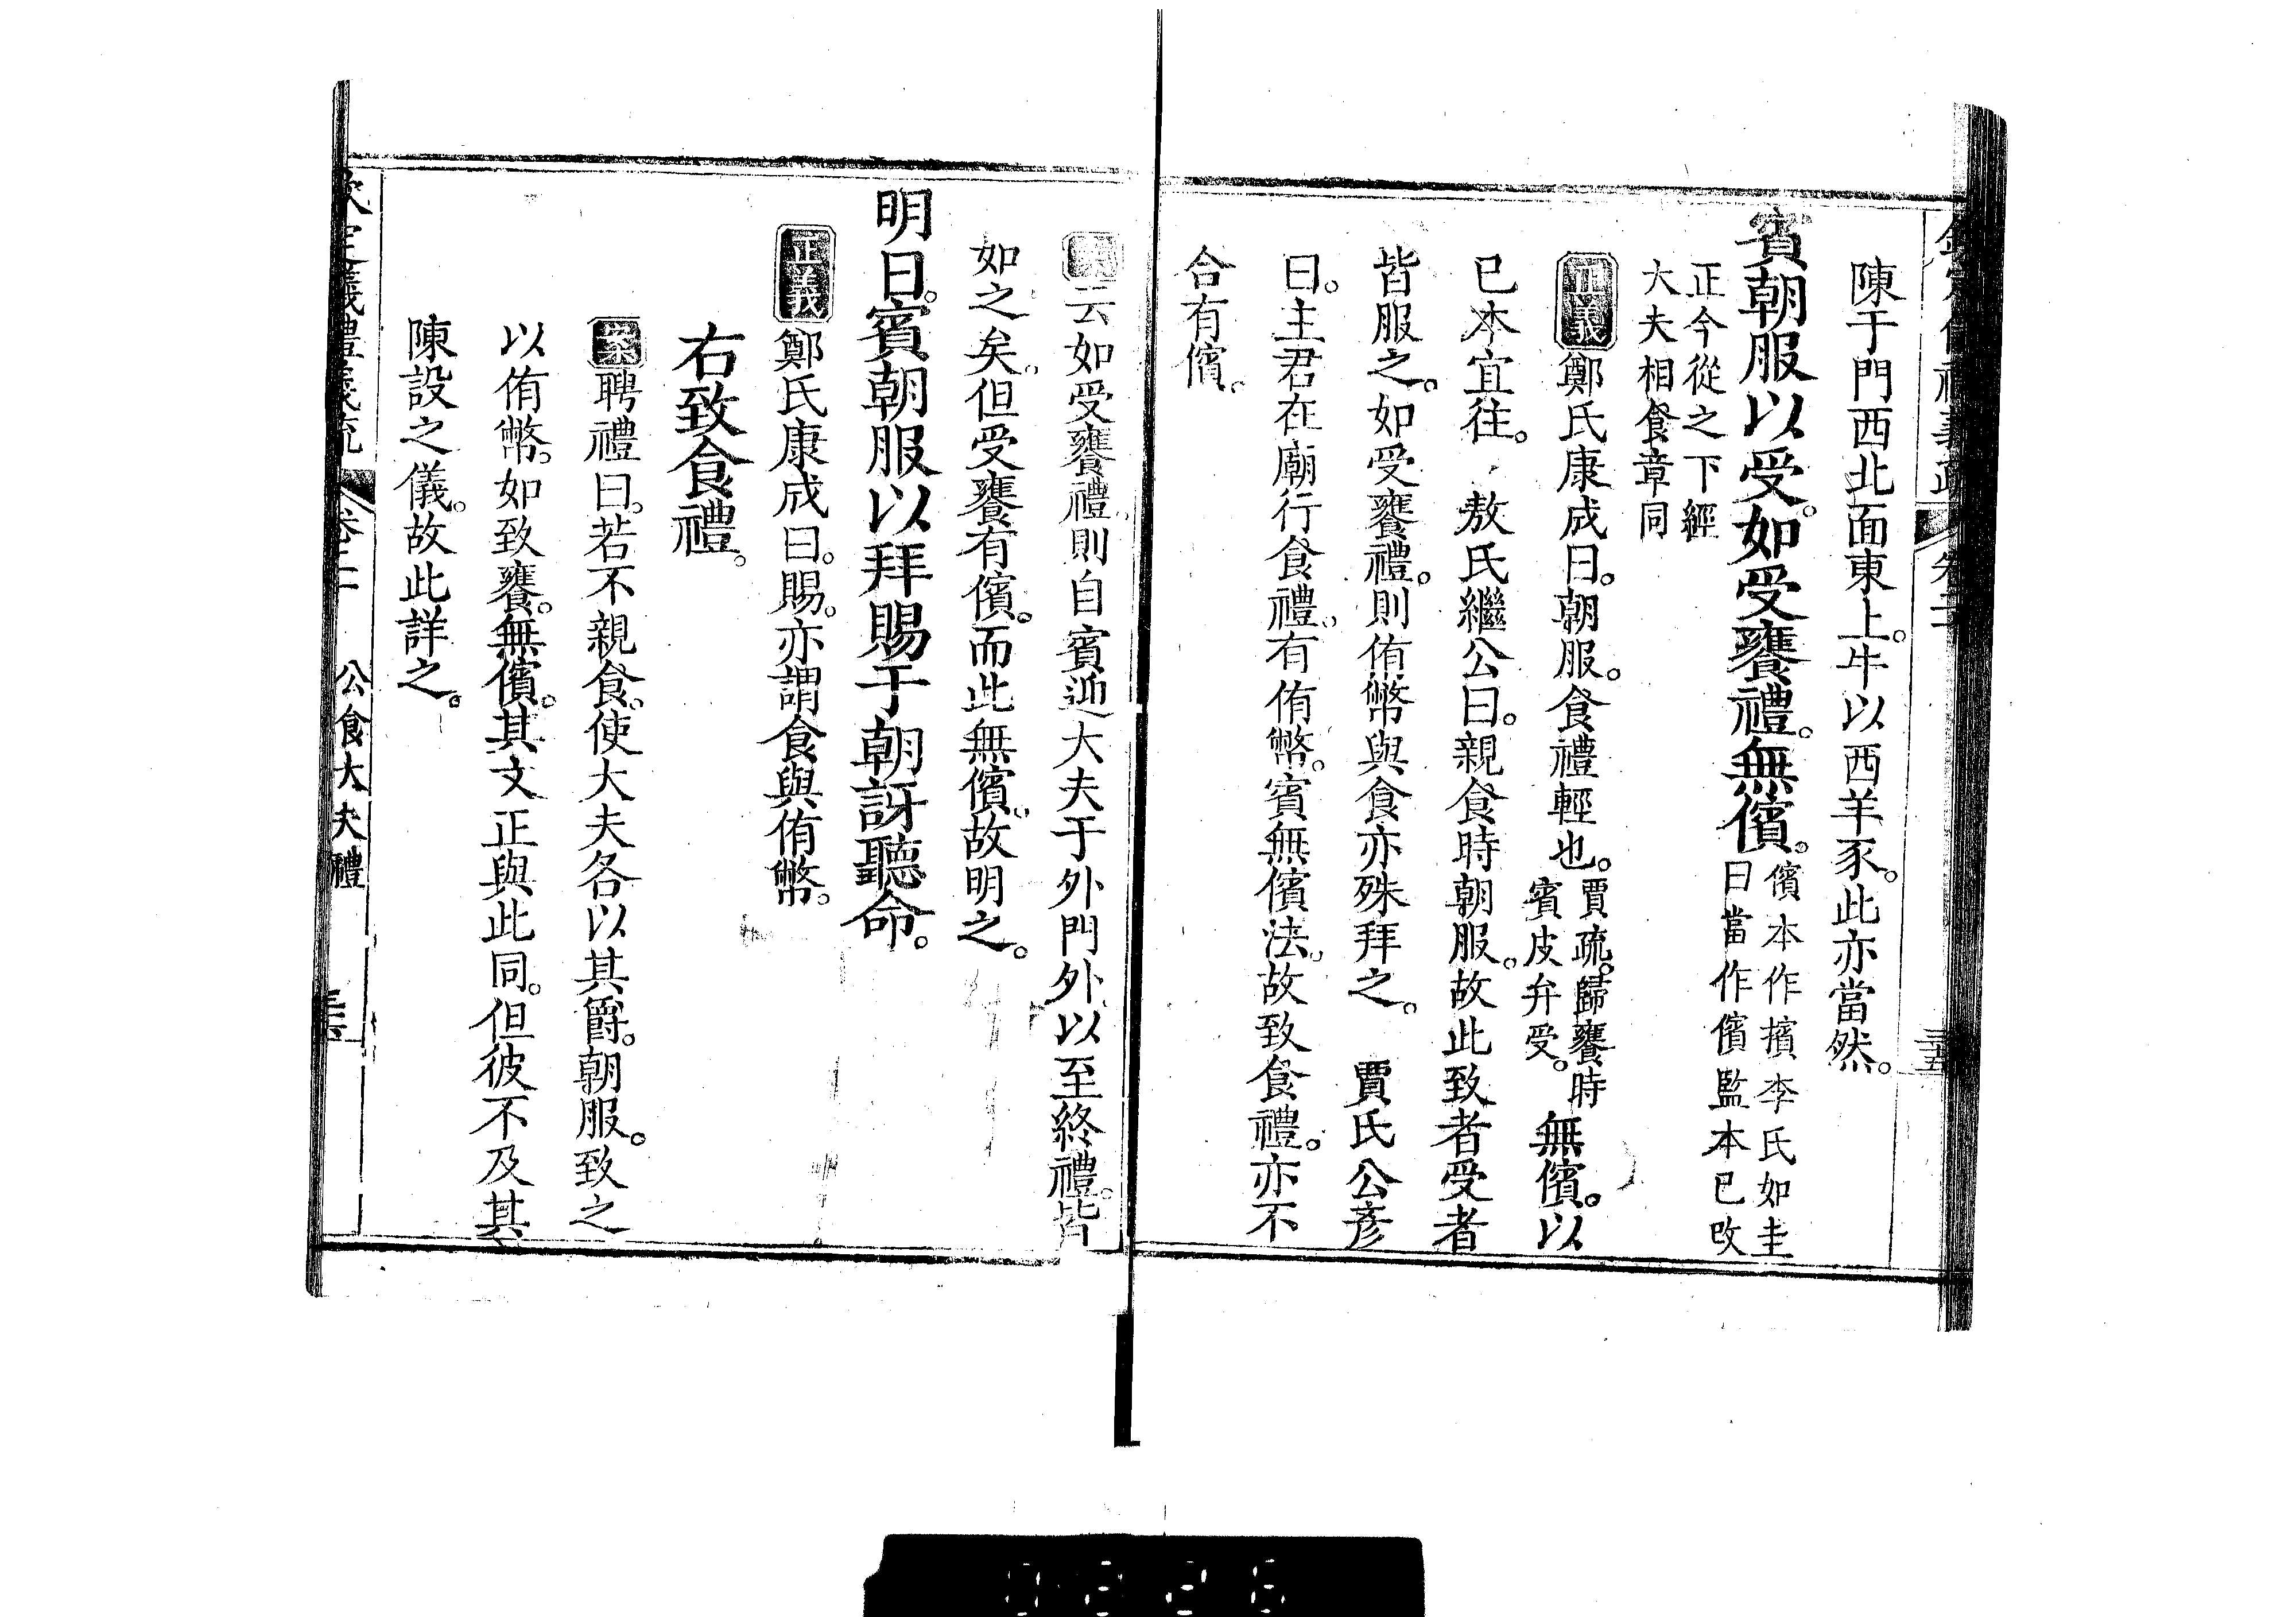 陳于門西北面東上。牛以西羊豕。此亦當然。
賓朝服以受。如受饔禮。無儐。儐本作擯李氏如圭
曰當作儐監本已改
正今從之下經
大夫相食章同
正義鄭氏康成曰。朝服。食禮輕也。賈疏。歸饔時
賓皮弁受。無儐。以
已本宜往。敖氏繼公曰。親食時朝服。故此致者受者
皆服之。如受饔禮。則侑幣與食亦殊拜之。賈氏公彥
曰。主君在廟行食禮。有侑幣。賓無儐法。故致食禮。亦不
合有儐。
云如受饔禮。則自賓迎大夫于外門外。以至終禮。皆
如之矣。但受饔有儐。而此無儐。故明之。
明日。賓朝服以拜賜于朝訝聽命。
正義鄭氏康成曰。賜。亦謂食與侑幣。
右致食禮。
案聘禮曰。若不親食。使大夫各以其爵。朝服。致之
以侑幣。如致饔。無儐。其文正與此同。但彼不及其
陳設之儀。故此詳之。
欽定儀禮義疏 卷二 公食大夫禮